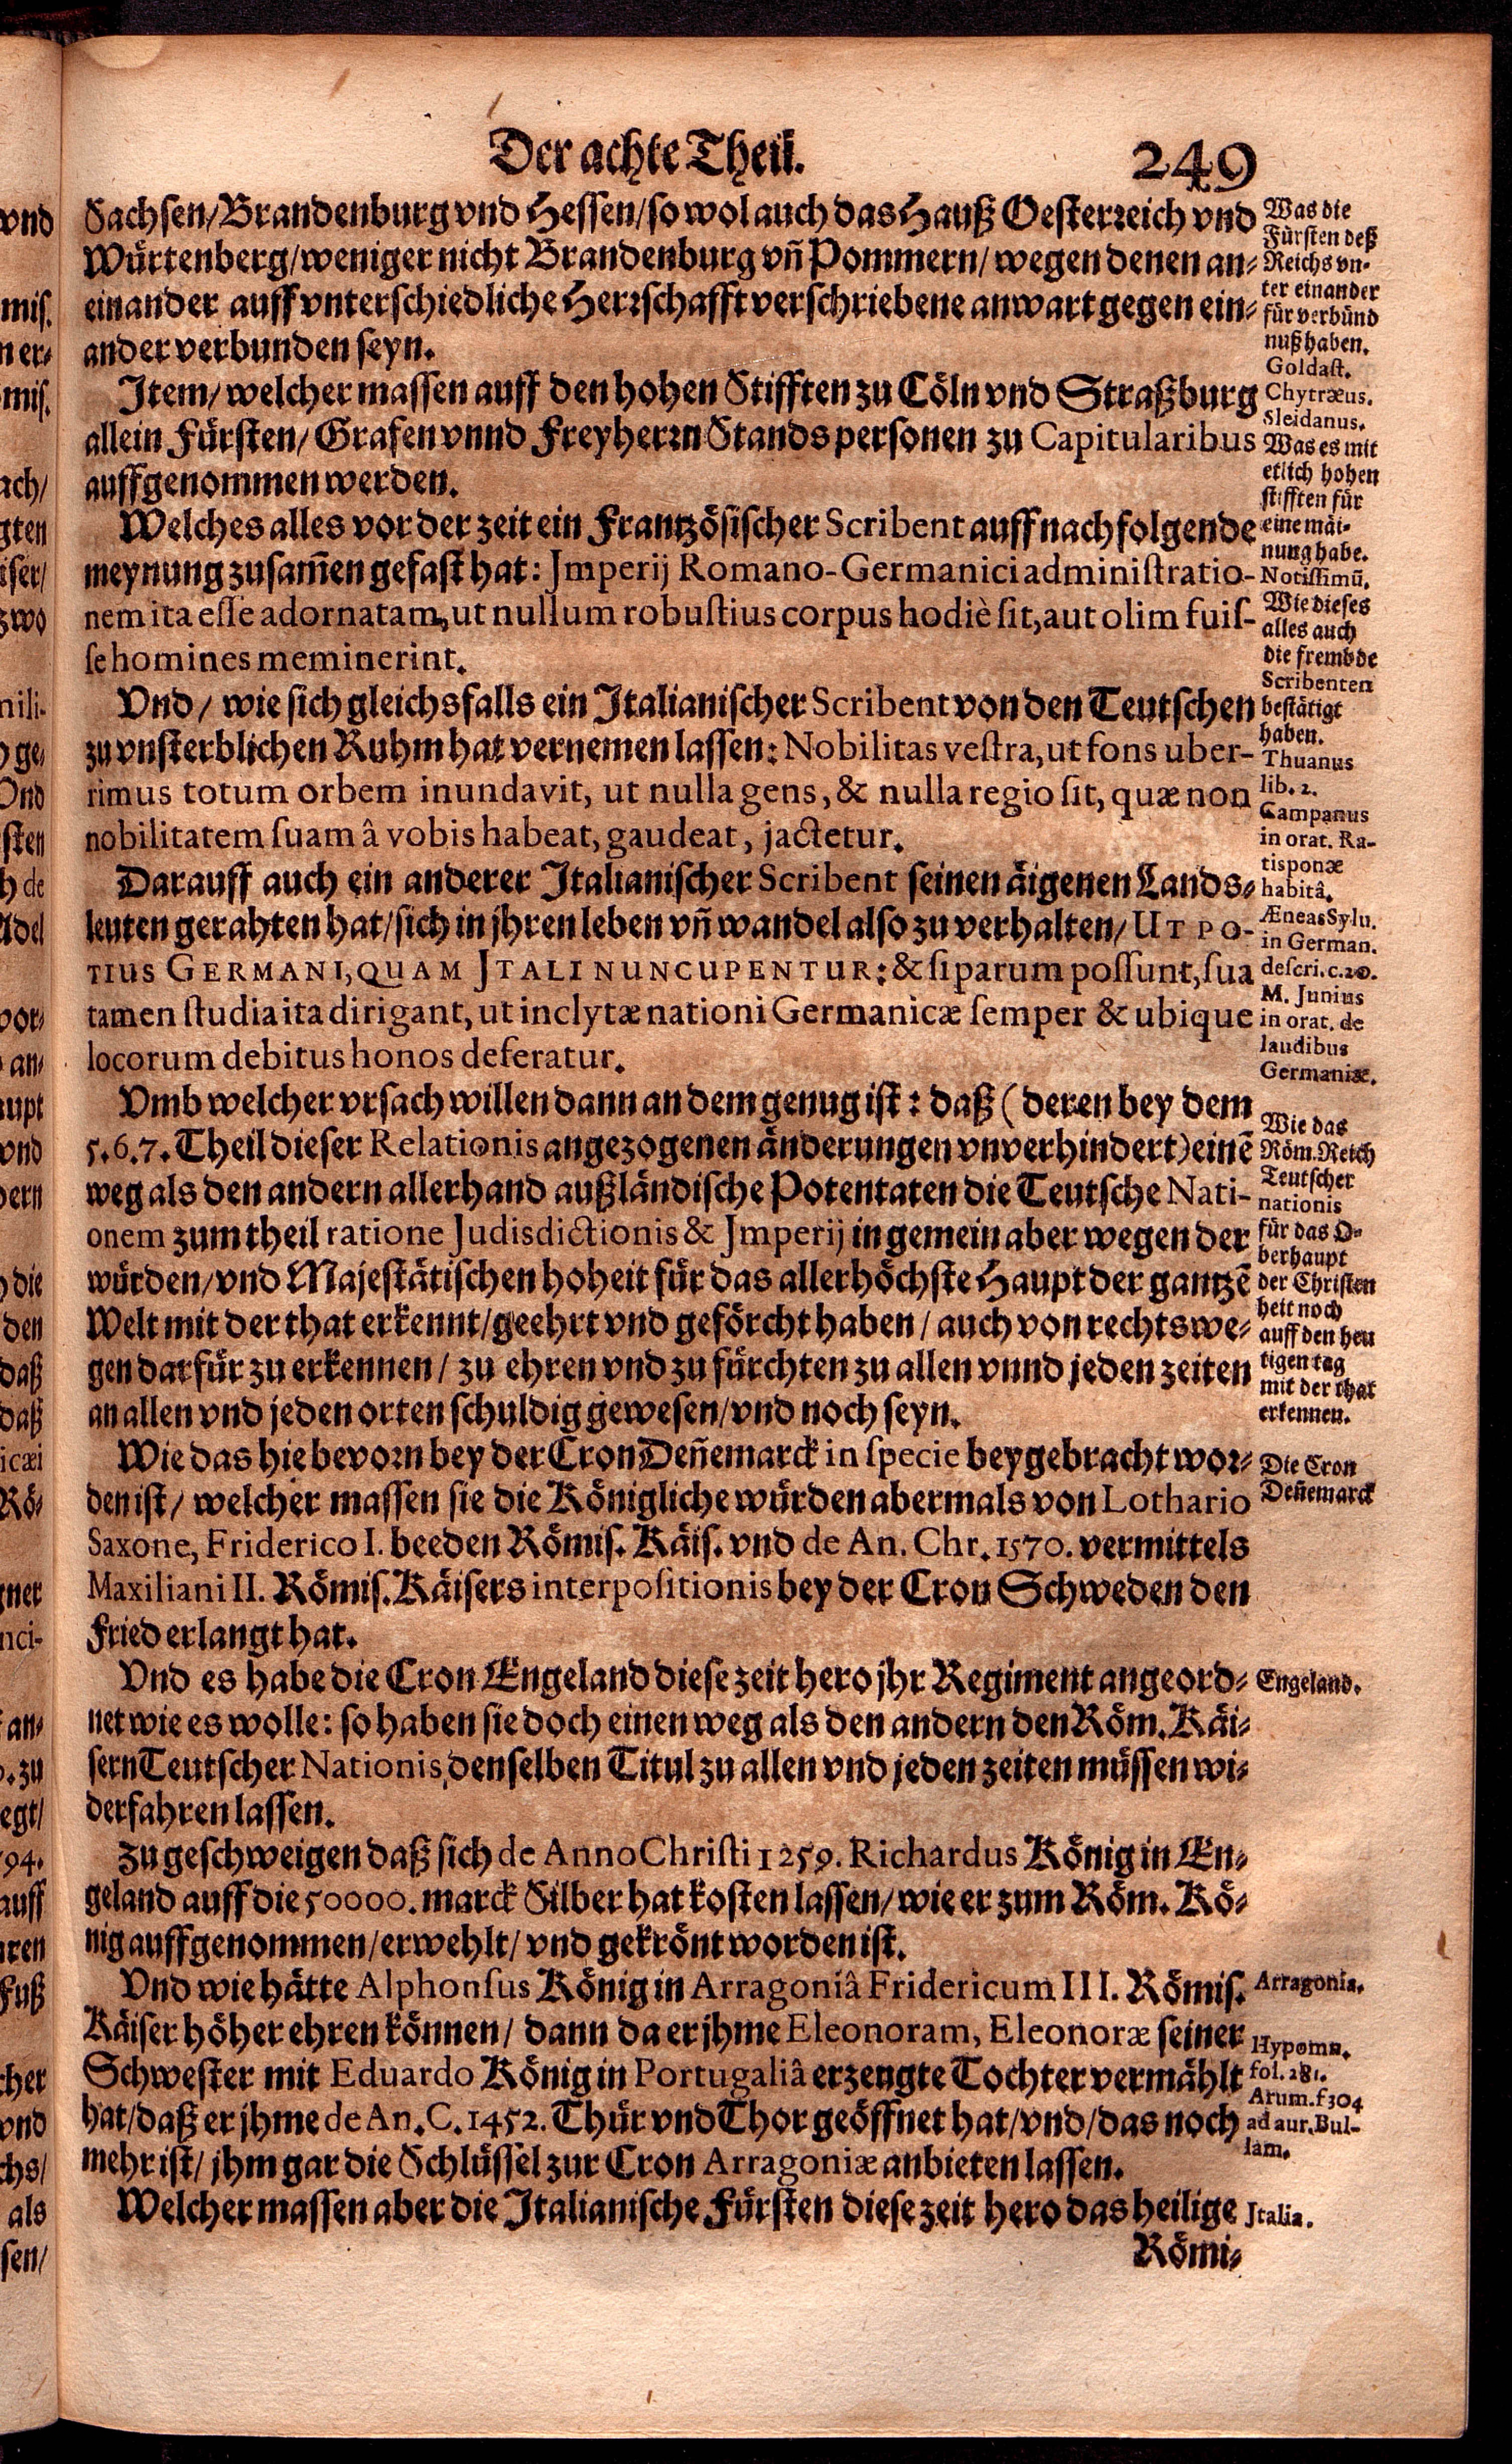 Der achte Theil. 249
Sachsen/Brandenburg vnd Hessen/so wol auch das Hauß Oesterreich vnd
Würtenberg/weniger nicht Brandenburg vñ Pommern/wegen denen an-
einander auff vnterschiedliche Herrschafft verschriebene anwart gegen ein-
ander verbunden seyn.
Item/welcher massen auff den hohen Stifften zu Cöln vnd Straßburg
allein Fürsten/Grafen vnnd Freyherrn Stands personen zu Capitularibus
auffgenommen werden.
Welches alles vor der zeit ein Frantzösischer Scribent auff nachfolgende
meynung zusam̃en gefast hat: Jmperij Romano-Germanici administratio-
nem ita esse adornatam, ut nullum robustius corpus hodiè sit, aut olim fuis-
se homines meminerint.
Vnd/wie sich gleichsfalls ein Italianischer Scribent von den Teutschen
zu vnsterblichen Ruhm hat vernemen lassen: Nobilitas vestra, ut fons uber-
rimus totum orbem inundavit, ut nulla gens, & nulla regio sit, quæ non
nobilitatem suam â vobis habeat, gaudeat, jactetur.
Darauff auch ein anderer Italianischer Scribent seinen äigenen Lands-
leuten gerahten hat/sich in jhren leben vñ wandel also zu verhalten/UT PO-
TIUS GERMANI, QUAM JTALI NUNCUPENTUR: & si parum possunt, sua
tamen studia ita dirigant, ut inclytæ nationi Germanicæ semper & ubique
locorum debitus honos deferatur.
Vmb welcher vrsach willen dann an dem genug ist: daß (deren bey dem
5.6.7. Theil dieser Relationis angezogenen änderungen vnverhindert) einẽ
weg als den andern allerhand außländische Potentaten die Teutsche Nati-
onem zum theil ratione Judisdictionis & Jmperij in gemein aber wegen der
würden/vnd Majestätischen hoheit für das allerhöchste Haupt der gantzẽ
Welt mit der that erkennt/geehrt vnd geförcht haben/auch von rechtswe-
gen darfür zu erkennen/zu ehren vnd zu fürchten zu allen vnnd jeden zeiten
an allen vnd jeden orten schuldig gewesen/vnd noch seyn.
Wie das hiebevorn bey der Cron Deñemarck in specie beygebracht wor-
den ist/welcher massen sie die Königliche würden abermals von Lothario
Saxone, Friderico I. beeden Römis. Käis. vnd de An. Chr. 1570. vermittels
Maxiliani II. Römis. Käisers interpositionis bey der Cron Schweden den
Fried erlangt hat.
Vnd es habe die Cron Engeland diese zeit hero jhr Regiment angeord-
net wie es wolle: so haben sie doch einen weg als den andern den Röm. Käi-
sern Teutscher Nationis, denselben Titul zu allen vnd jeden zeiten müssen wi-
derfahren lassen.
Zu geschweigen daß sich de Anno Christi 1259. Richardus König in En-
geland auff die 50000. marck Silber hat kosten lassen/wie er zum Röm. Kö-
nig auffgenommen/erwehlt/vnd gekrönt worden ist.
Vnd wie hätte Alphonsus König in Arragoniâ Fridericum III. Römis.
Käiser höher ehren können/dann da er jhme Eleonoram, Eleonoræ seiner
Schwester mit Eduardo König in Portugaliâ erzeugte Tochter vermählt
hat/daß er jhme de An. C. 1452. Thür vnd Thor geöffnet hat/vnd/das noch
mehr ist/jhm gar die Schlüssel zur Cron Arragoniæ anbieten lassen.
Welcher massen aber die Italianische Fürsten diese zeit hero das heilige
Römi-
Was die
Fürsten deß
Reichs vn-
ter einander
für verbünd
nuß haben.
Goldast.
Chytræus.
Sleidanus.
Was es mit
etlich hohen
stifften für
eine mäi-
nung habe.
Notissimũ.
Wie dieses
alles auch
die frembde
Scribenten
bestätigt
haben.
Thuanus
lib. 2.
Campanus
in orat. Ra-
tisponæ
habitâ.
Æneas Sylu.
in German.
descri. c. 20.
M. Junius
in orat. de
laudibus
Germaniæ.
Wie das
Röm. Reich
Teutscher
nationis
für das O-
berhaupt
der Christen
heit noch
auff den heu
tigen tag
mit der that
erkennen.
Die Cron
Deñemarck
Engeland.
Arragonia.
Hypomn.
fol. 281.
Arum. f 304
ad aur. Bul-
lam.
Jtalia.